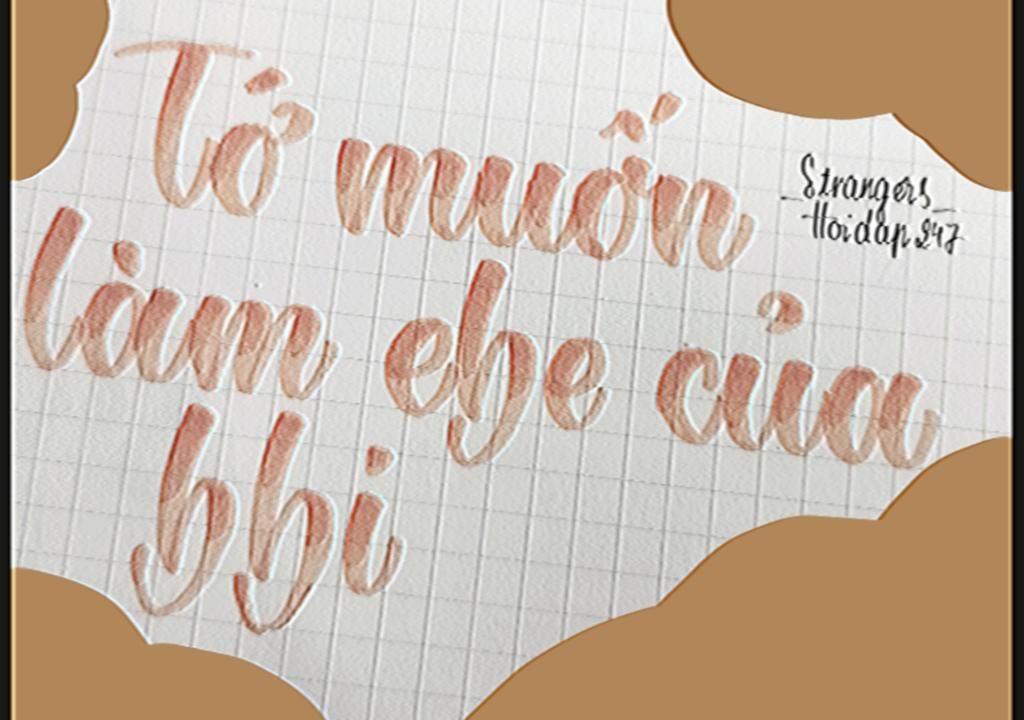 Tớ muốn
_Strangers_
Hoidap247
làm ebe của
bbi